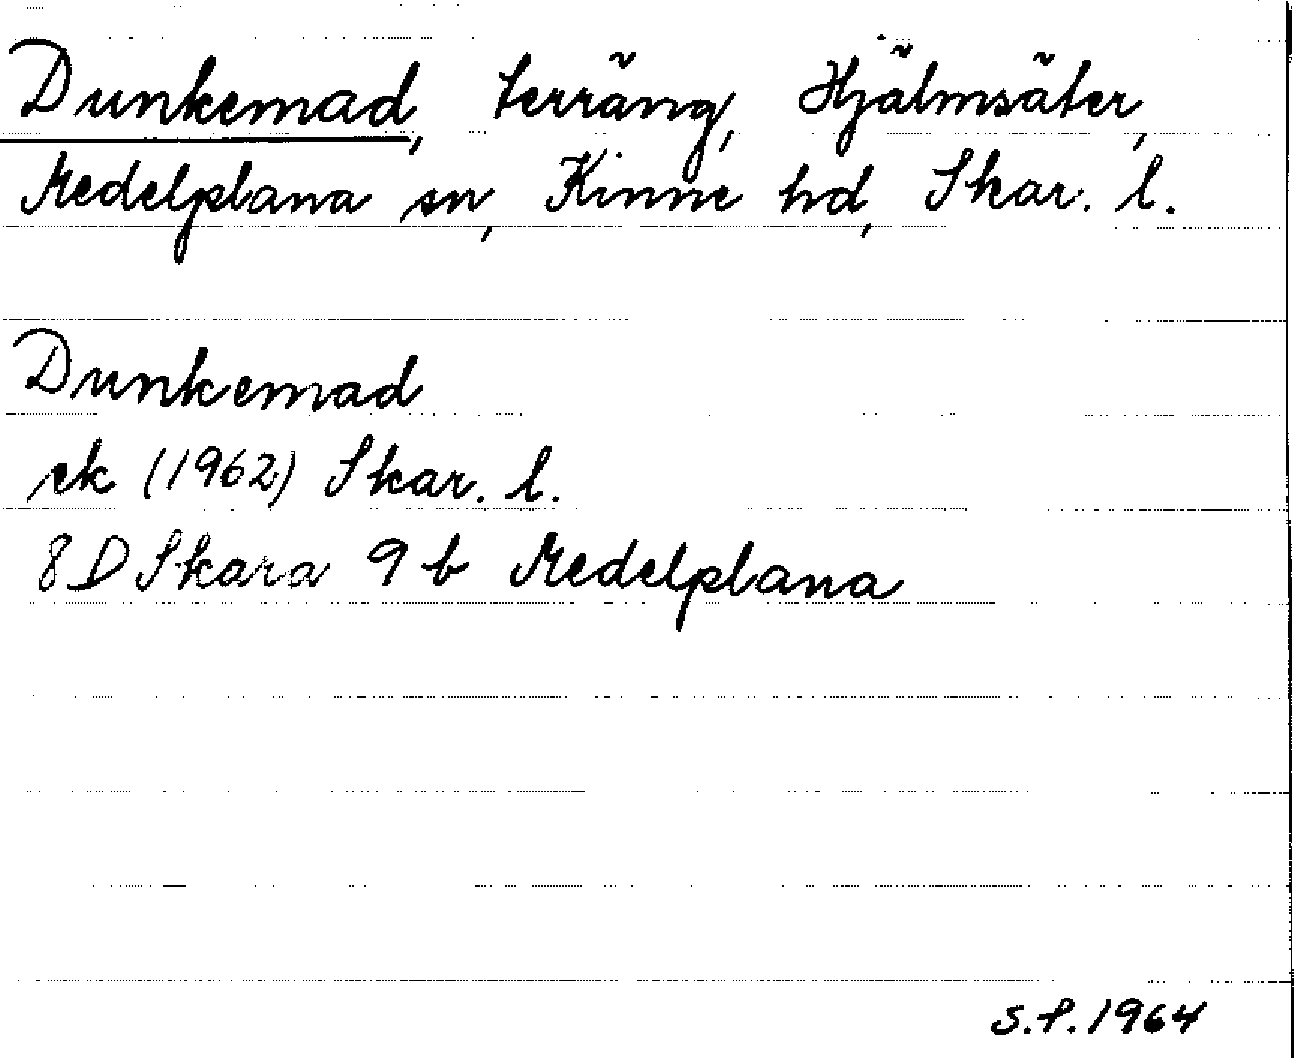 Dunkemad, terräng, Hjälmsäter,
Medelplana sn, Kinne hd, Skar. l.
Dunkemad
ek (1962) Skar. l.
8D Skara 9 b Medelplana
S.P. 1964